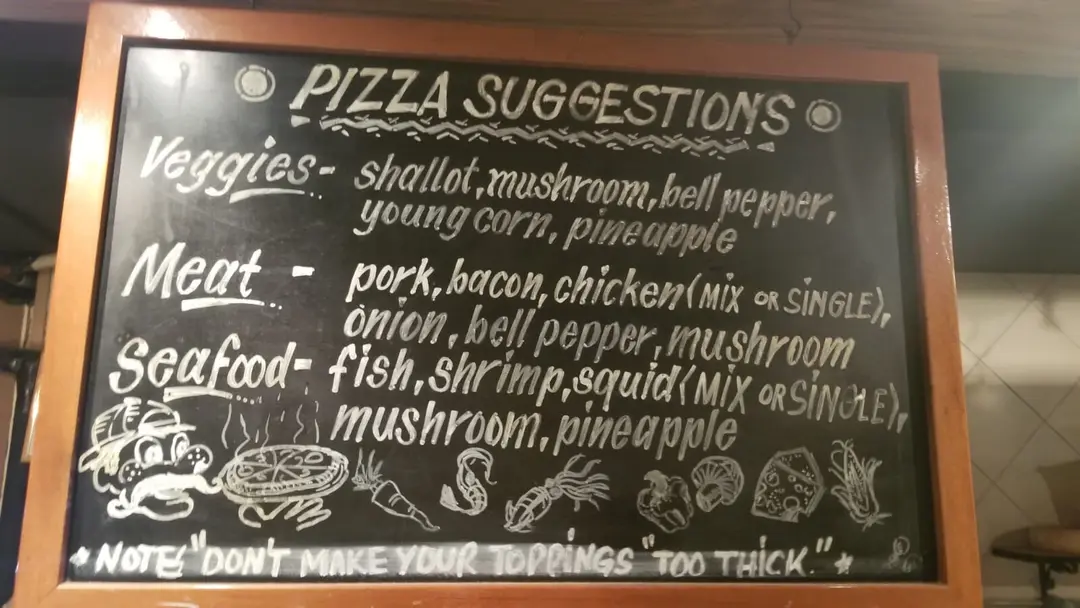 PIZZA SUGGESTIONS
Veggies- shallot, mushroom, bell pepper,
young corn, pineapple
Meat - pork, bacon, chicken (MIX OR SINGLE),
onion, bell pepper, mushroom
Seafood- fish, shrimp, squid (MIX OR SINGLE),
mushroom, pineapple
*NOTE! "DON'T MAKE YOUR TOPPINGS "TOO THICK."*